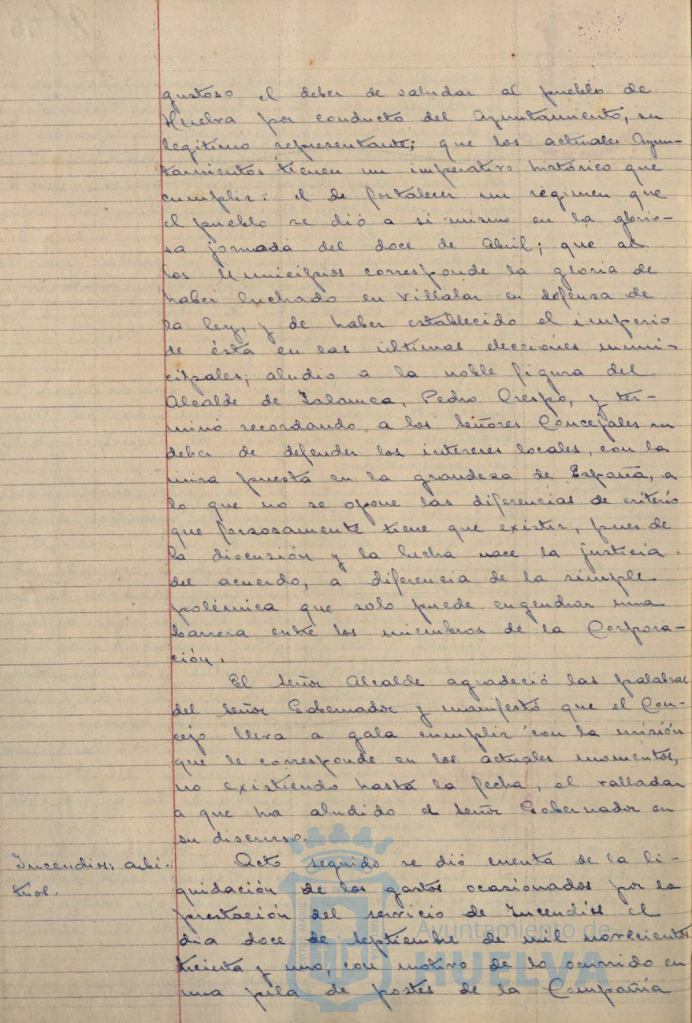 gustoso el deber de saludar al pueblo de
Huelva por conducto del Ayuntamiento, su
legitimo representante; que los actuales Ayun-
tamientos tienen un imperativo histórico que
cumplir: el de fortalecer un régimen que
el pueblo se dió a si mismo en la glorio-
sa jornada del doce de Abril; que a
los Municipios corresponde la gloria de
haber luchado en Villalar en defensa de
la ley, y de haber establecido el imperio
de ésta en las ultimas elecciones muni-
cipales; aludio a la noble figura del
Alcalde de Zalamea, Pedro Crespo, y ter-
minó recordando a los Señores Concejales su
deber de defender los intereses locales, con la
mira puesta en la grandeza de España, a
lo que no se opone las diferencias de criterio
que forzosamente tiene que existir, pues de
la discusión y la lucha nace la justicia
del acuerdo, a diferencia de la simple
polémica que solo puede engendrar una
barrera entre los miembros de la Corpora-
ción.
El Señor Alcalde agradeció las palabras
del Señor Gobernador y manifestó que el Con-
cejo lleva a gala cumplir con la misión
que le corresponde en los actuales momentos,
no existiendo hasta la fecha, el valladar
a que ha aludido el Señor Gobernador en
su discurso.
Incendios arbi-
trios.
Acto seguido se dió cuenta de la li-
quidación de los gastos ocasionados por la
prestación del servicio de Incendios el
dia doce de Septiembre de mil novecientos
treinta y uno, con motivo de lo ocurrido en
una pila de postes de la Compañia
Ayuntamiento de
HUELVA